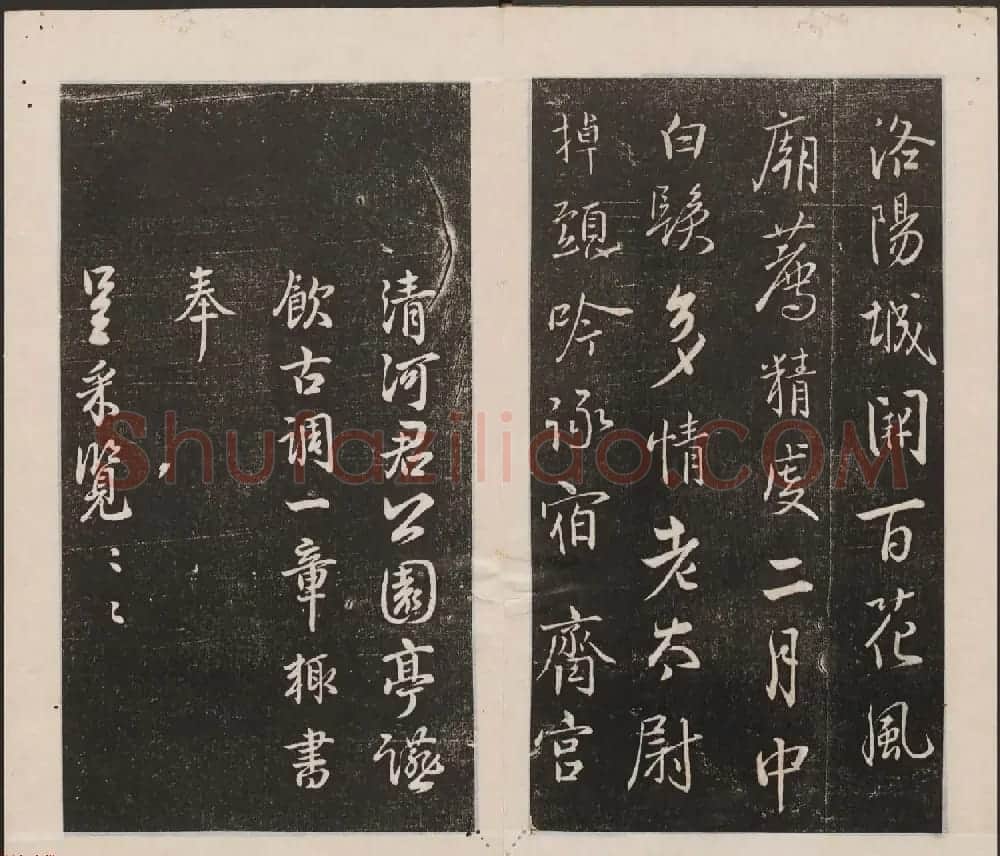 洛陽城開百花風
廟薦精虔二月中
白髮多情老太尉
掉頭吟詠宿齋宮
清河君公園亭讌
飲古調一章輙書
奉
呈采覽〻〻
Shufaziliao.COM